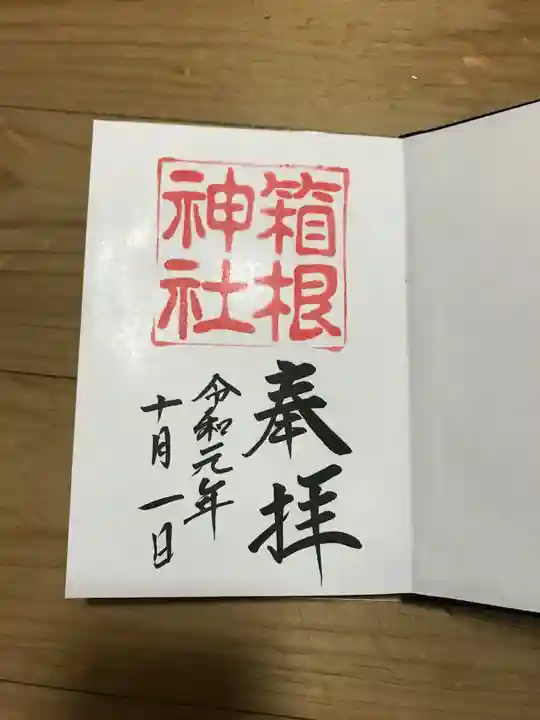 箱根
神社
奉拝
令和元年
十月一日